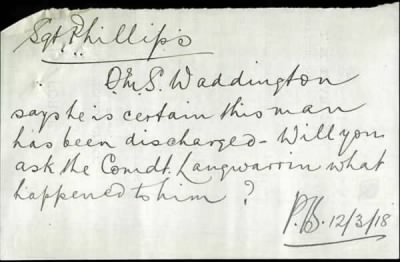 Sgt. Phillips
Q.M.S. Waddington
says he is certain this man
has been discharged - Will you
ask the Comdt. Langwarrin what
happened to him ?
P.S. 12/3/18